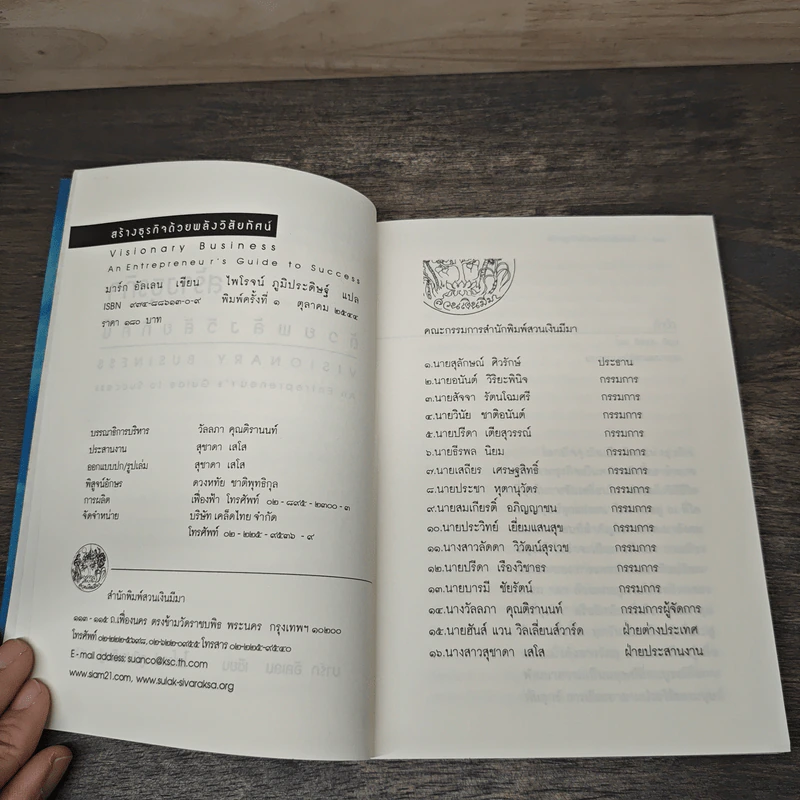 สร้างธุรกิจด้วยพลังวิสัยทัศน์
Visionary Business
An Entrepreneur's Guide to Success
มาร์ก อัลเลน เขียน ไพโรจน์ ภูมิประดิษฐ์ แปล
ISBN ๙๗๔-๘๘๖๑๓-๐-๙ พิมพ์ครั้งที่ ๑ ตุลาคม ๒๕๔๔
ราคา ๑๘๐ บาท
บรรณาธิการบริหาร วัลลภา คุณติรานนท์
ประสานงาน สุชาดา เสโส
ออกแบบปก/รูปเล่ม สุชาดา เสโส
พิสูจน์อักษร ดวงหทัย ชาติพุทธิกุล
การผลิต เฟื่องฟ้า โทรศัพท์ ๐๒-๘๙๕-๒๓๐๐-๓
จัดจำหน่าย บริษัท เคล็ดไทย จำกัด
โทรศัพท์ ๐๒-๒๒๕-๙๕๓๖-๙
สำนักพิมพ์สวนเงินมีมา
๑๑๓-๑๑๕ ถ.เฟื่องนคร ตรงข้ามวัดราชบพิธ พระนคร กรุงเทพฯ ๑๐๒๐๐
โทรศัพท์ ๐๒-๒๒๒-๕๖๙๘, ๐๒-๖๒๒-๐๙๕๕ โทรสาร ๐๒-๒๒๕-๙๕๔๐
E-mail address: suanco@ksc.th.com
www.siam21.com, www.sulak-sivaraksa.org
สวนเงินมีมา
คณะกรรมการสำนักพิมพ์สวนเงินมีมา
๑.นายสุลักษณ์ ศิวรักษ์ ประธาน
๒.นายอนันต์ วิริยะพินิจ กรรมการ
๓.นายสัจจา รัตนโฉมศรี กรรมการ
๔.นายวินัย ชาติอนันต์ กรรมการ
๕.นายปรีดา เตียสุวรรณ์ กรรมการ
๖.นายธีรพล นิยม กรรมการ
๗.นายเสถียร เศรษฐสิทธิ์ กรรมการ
๘.นายประชา หุตานุวัตร กรรมการ
๙.นายสมเกียรติ์ อภิญญาชน กรรมการ
๑๐.นายประวิทย์ เยี่ยมแสนสุข กรรมการ
๑๑.นางสาวลัดดา วิวัฒน์สุรเวช กรรมการ
๑๒.นายปรีดา เรืองวิชาธร กรรมการ
๑๓.นายบารมี ชัยรัตน์ กรรมการ
๑๔.นางวัลลภา คุณติรานนท์ กรรมการผู้จัดการ
๑๕.นายฮันส์ แวน วิลเลี่ยนส์วาร์ด ฝ่ายต่างประเทศ
๑๖.นางสาวสุชาดา เสโส ฝ่ายประสานงาน